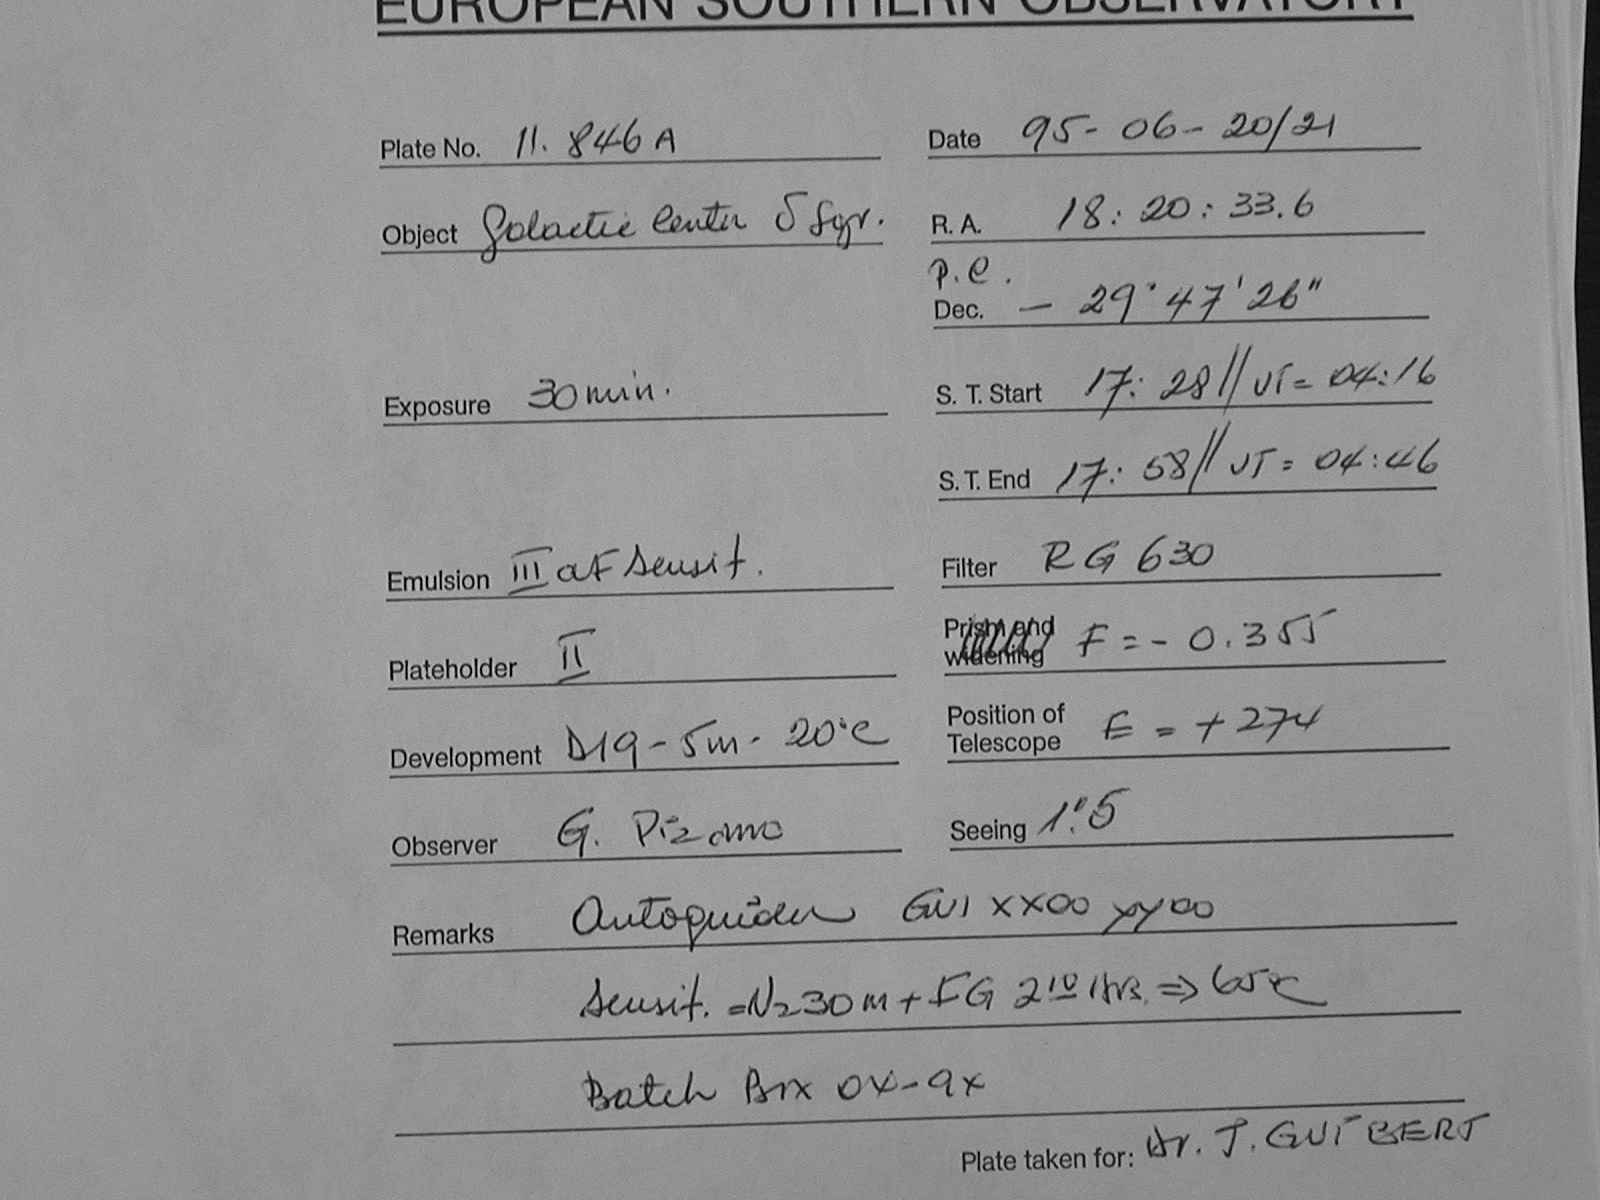 EUROPEAN SOUTHERN OBSERVATORY
Plate No. 11.846A Date 95-06-20/21
Object Galactic Center δ Sgr. R. A. 18:20:33.6
P.C.
Dec. - 29°47'26"
Exposure 30 min. S. T. Start 17:28// UT= 04:16
S. T. End 17:58// UT= 04:46
Emulsion III aF Sensit. Filter RG 630
Plateholder II Prism and widening F = - 0.355
Development D19 - 5m - 20°C Position of Telescope E = + 274
Observer G. Pizarro Seeing 1".5
Remarks Autoguider GUI XX00 yy00
Sensit. = N2 30m + FG 2 10 Hrs. ⇒ 65°C
Batch Box 0X-9X
Plate taken for: Dr. J. GUIBERT